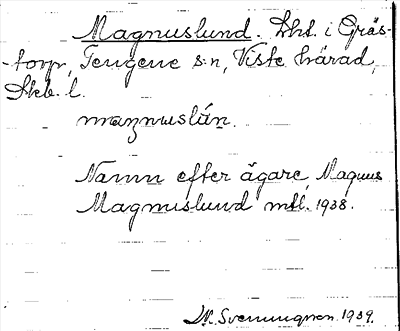 Magnuslund. Lht. i Gräs-
-torp, Tengene s:n, Viste härad,
Skb. l.
maŋnuslún.
Namn efter ägare, Magnus
Magnuslund mtl. 1938.
N. Svenningson 1939.